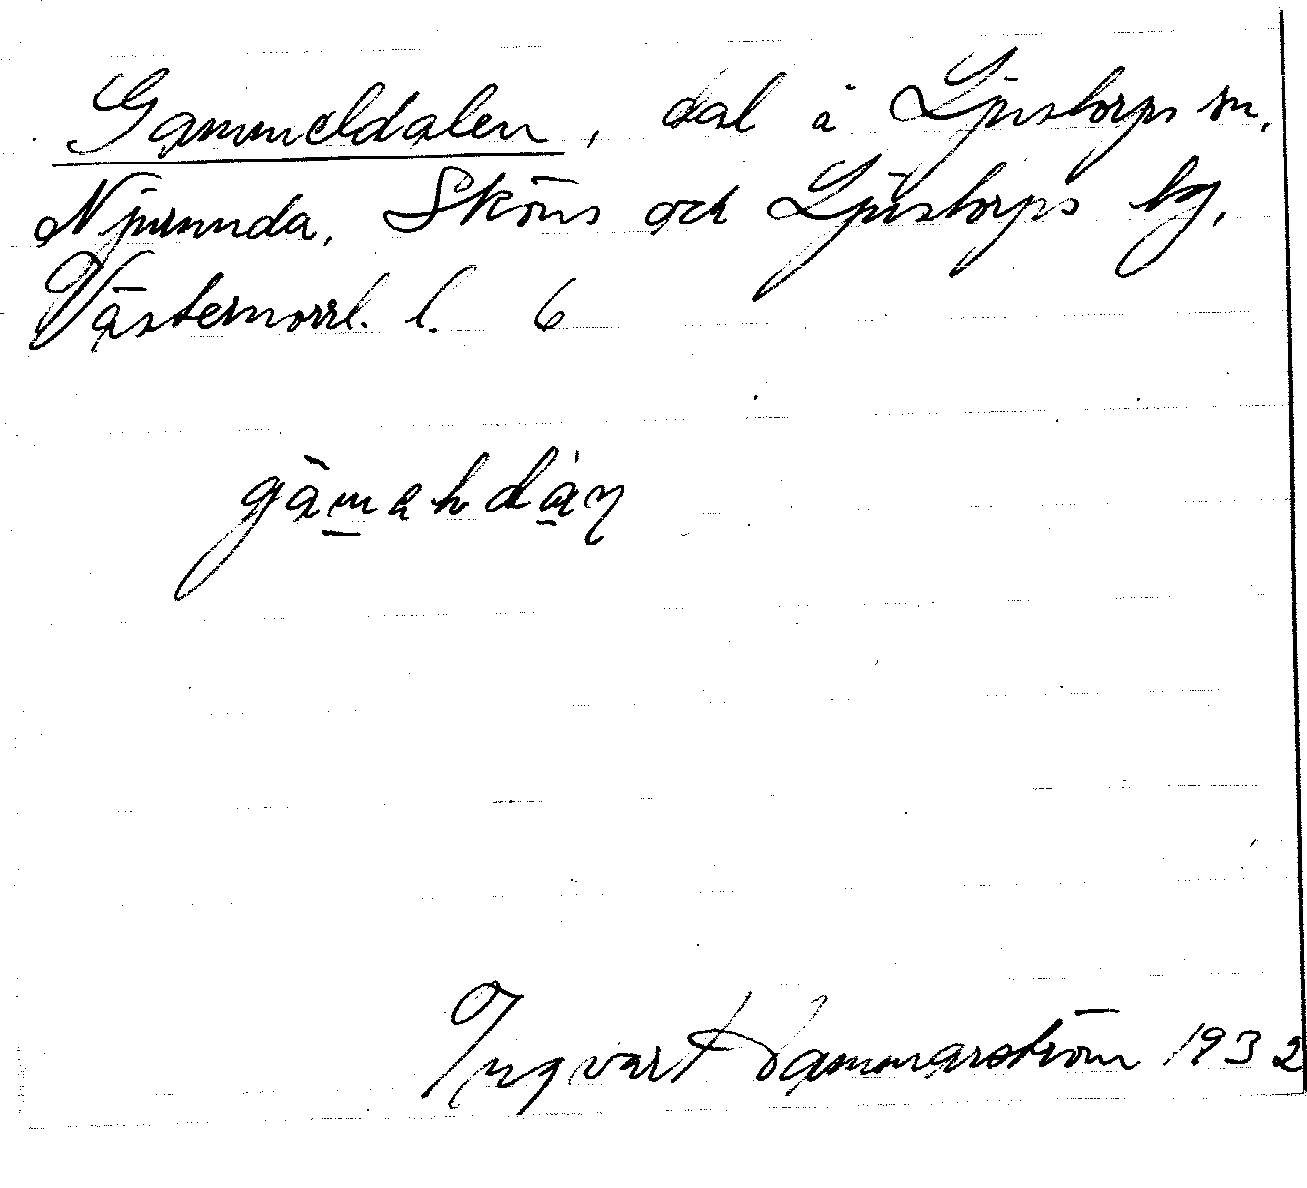 Gammeldalen, dal å Ljustorps sn,
Njurunda, Sköns och Ljustorps tg,
Västernorrl. l. 6
Ingvart Hammarström 1932